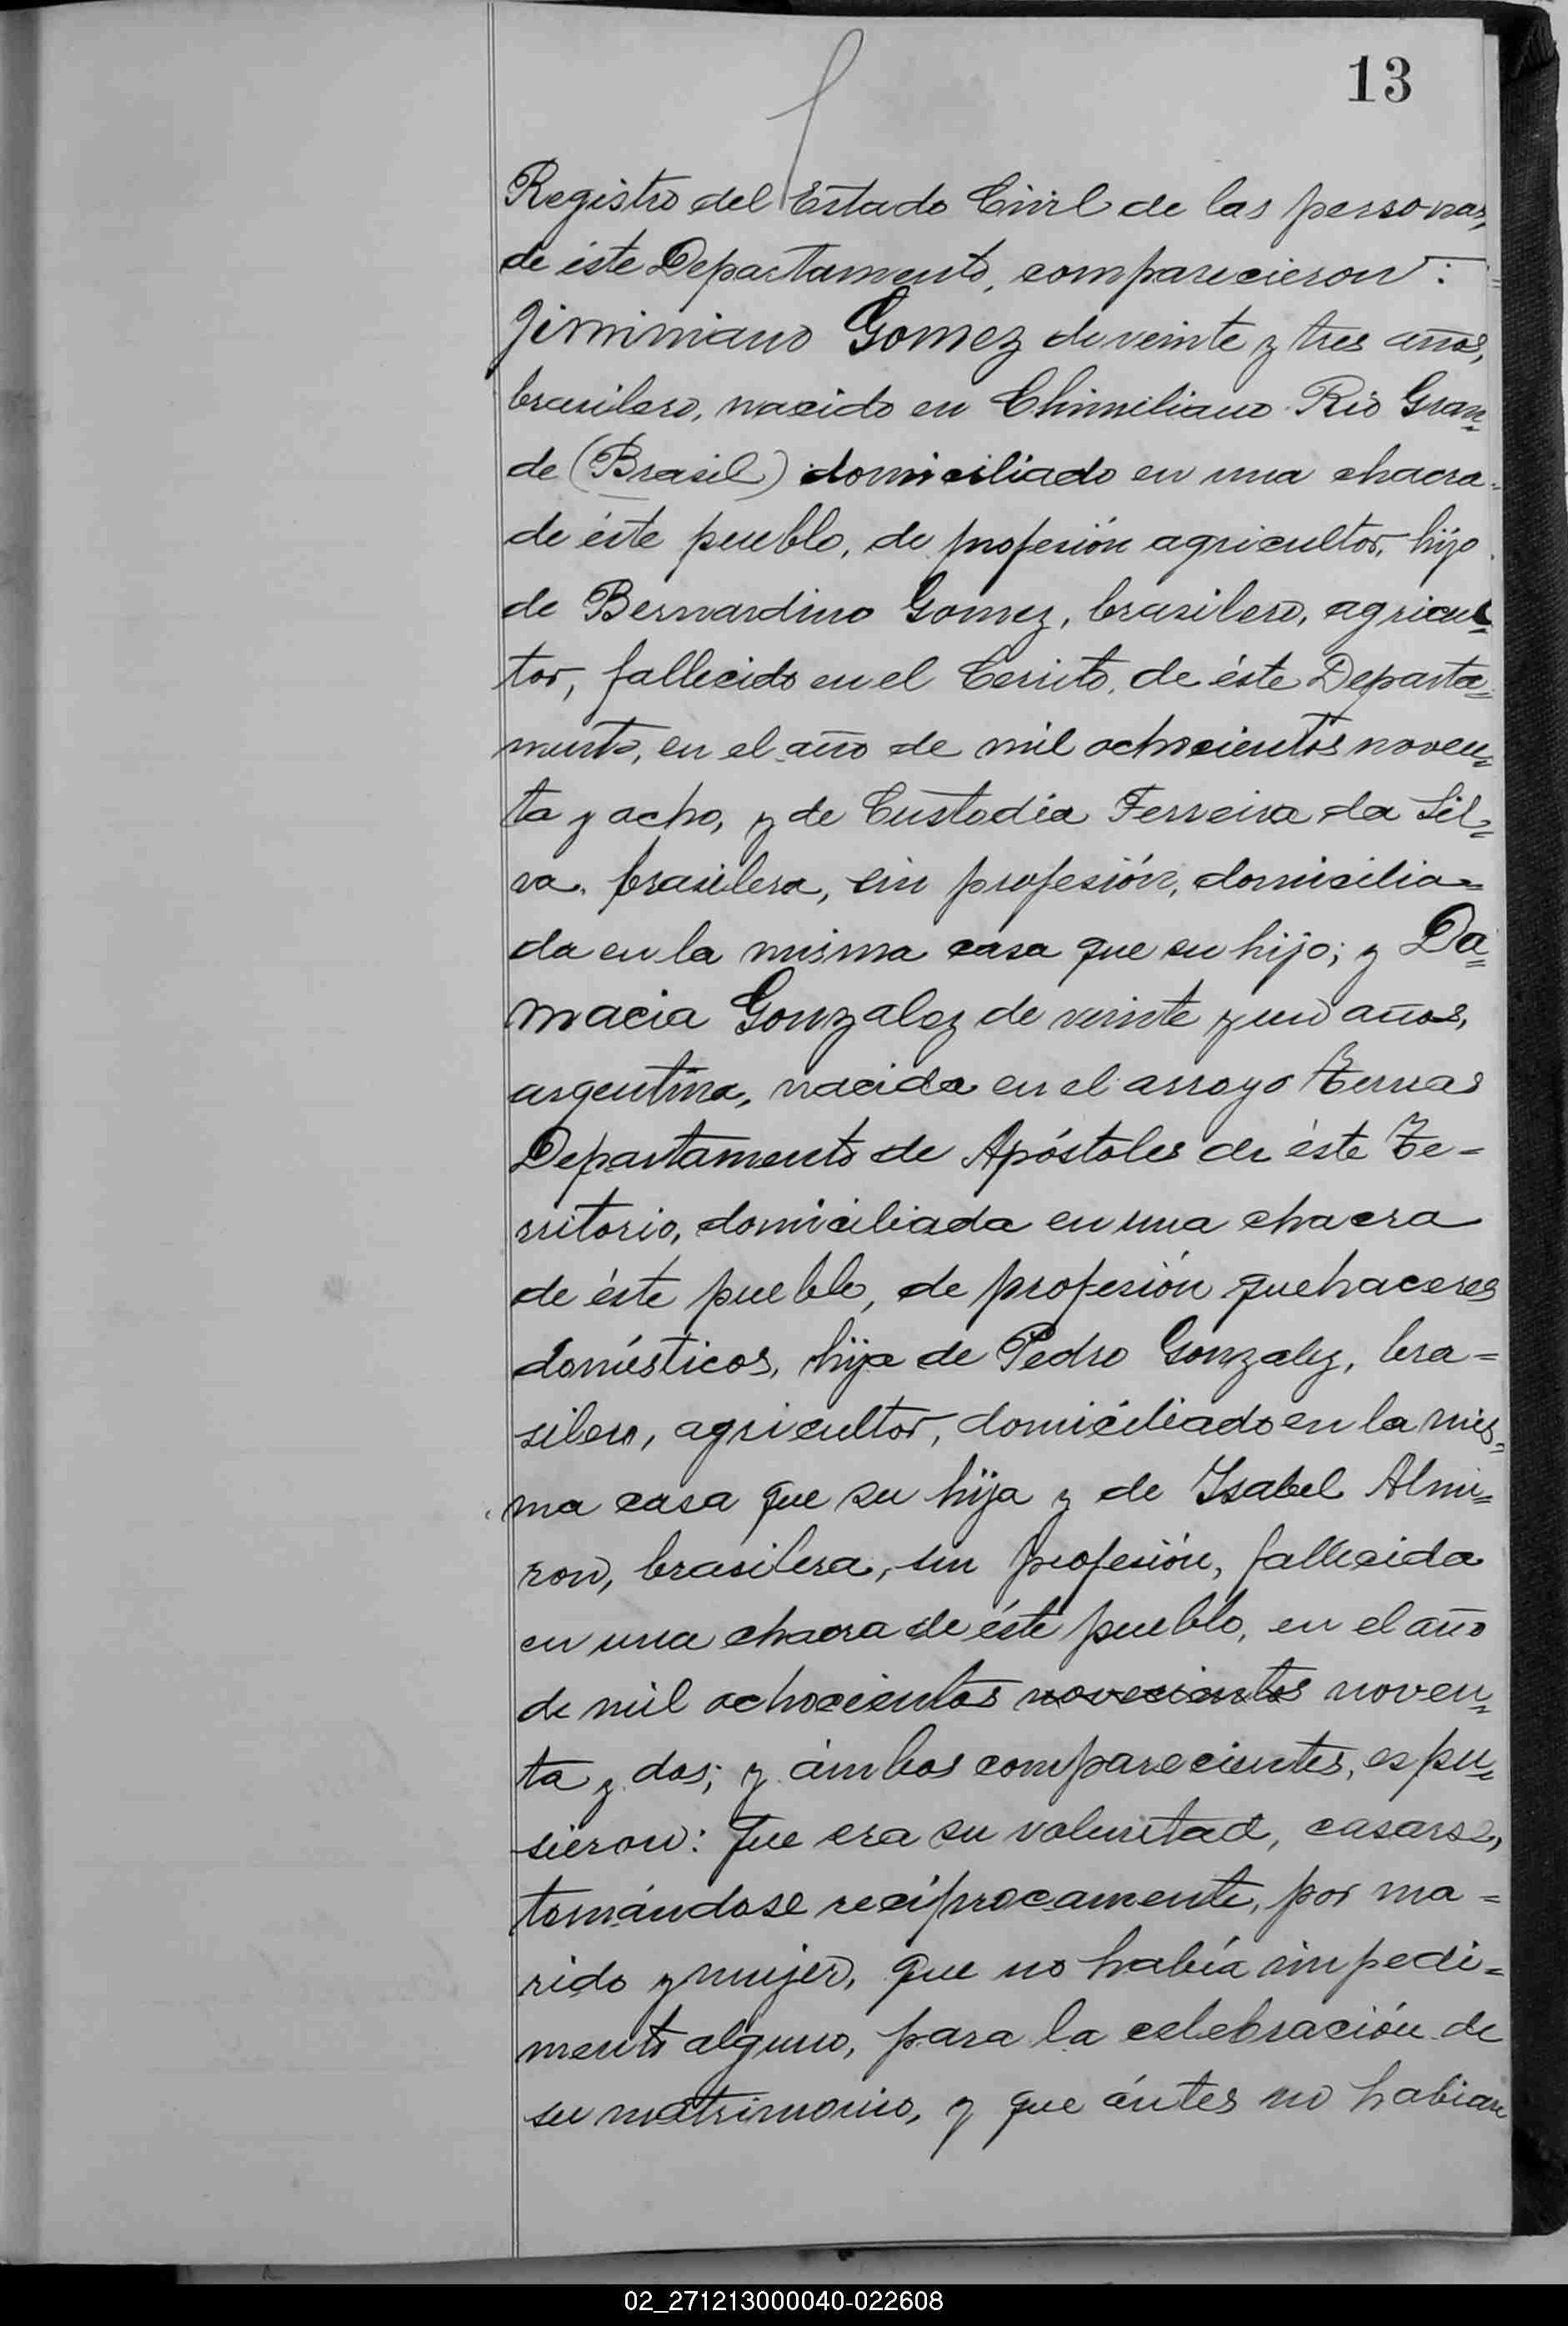 13
Registro del Estado Civil de las personas,
de éste Departamento, comparecieron:
Jiminiano Gomez de veinte y tres años,
brasilero, nacido en Chimiliano Rio Gran=
de (Brasil) domiciliado en una chacra
de éste pueblo, de profesión agricultor, hijo
de Bernardino Gomez, brasilero, agricul=
tor, fallecido en el Cerrito, de éste Departa=
mento, en el año de mil ochocientos noven=
ta y ocho, y de Custodia Ferreira da Sil=
va, brasilera, sin profesión, domicilia=
da en la misma casa que su hijo; y Da=
macia Gonzalez de veinte y un años,
argentina, nacida en el arroyo
Departamento de Apóstoles de éste Te=
rritorio, domiciliada en una chacra
de éste pueblo, de profesión quehaceres
domésticos, hija de Pedro Gonzalez, bra=
silero, agricultor, domiciliado en la mis=
ma casa que su hija y de Isabel Almi=
ron, brasilera, sin profesión, fallecida
en una chacra de éste pueblo, en el año
de mil ochocientos novecientos noven=
ta y dos; y ámbos comparecientes, espu=
sieron: Que era su voluntad, casarse,
tomándose recíprocamente, por ma=
rido y mujer, que no había impedi=
mento alguno, para la celebración de
su matrimonio, y que ántes no habian
02_271213000040-022608